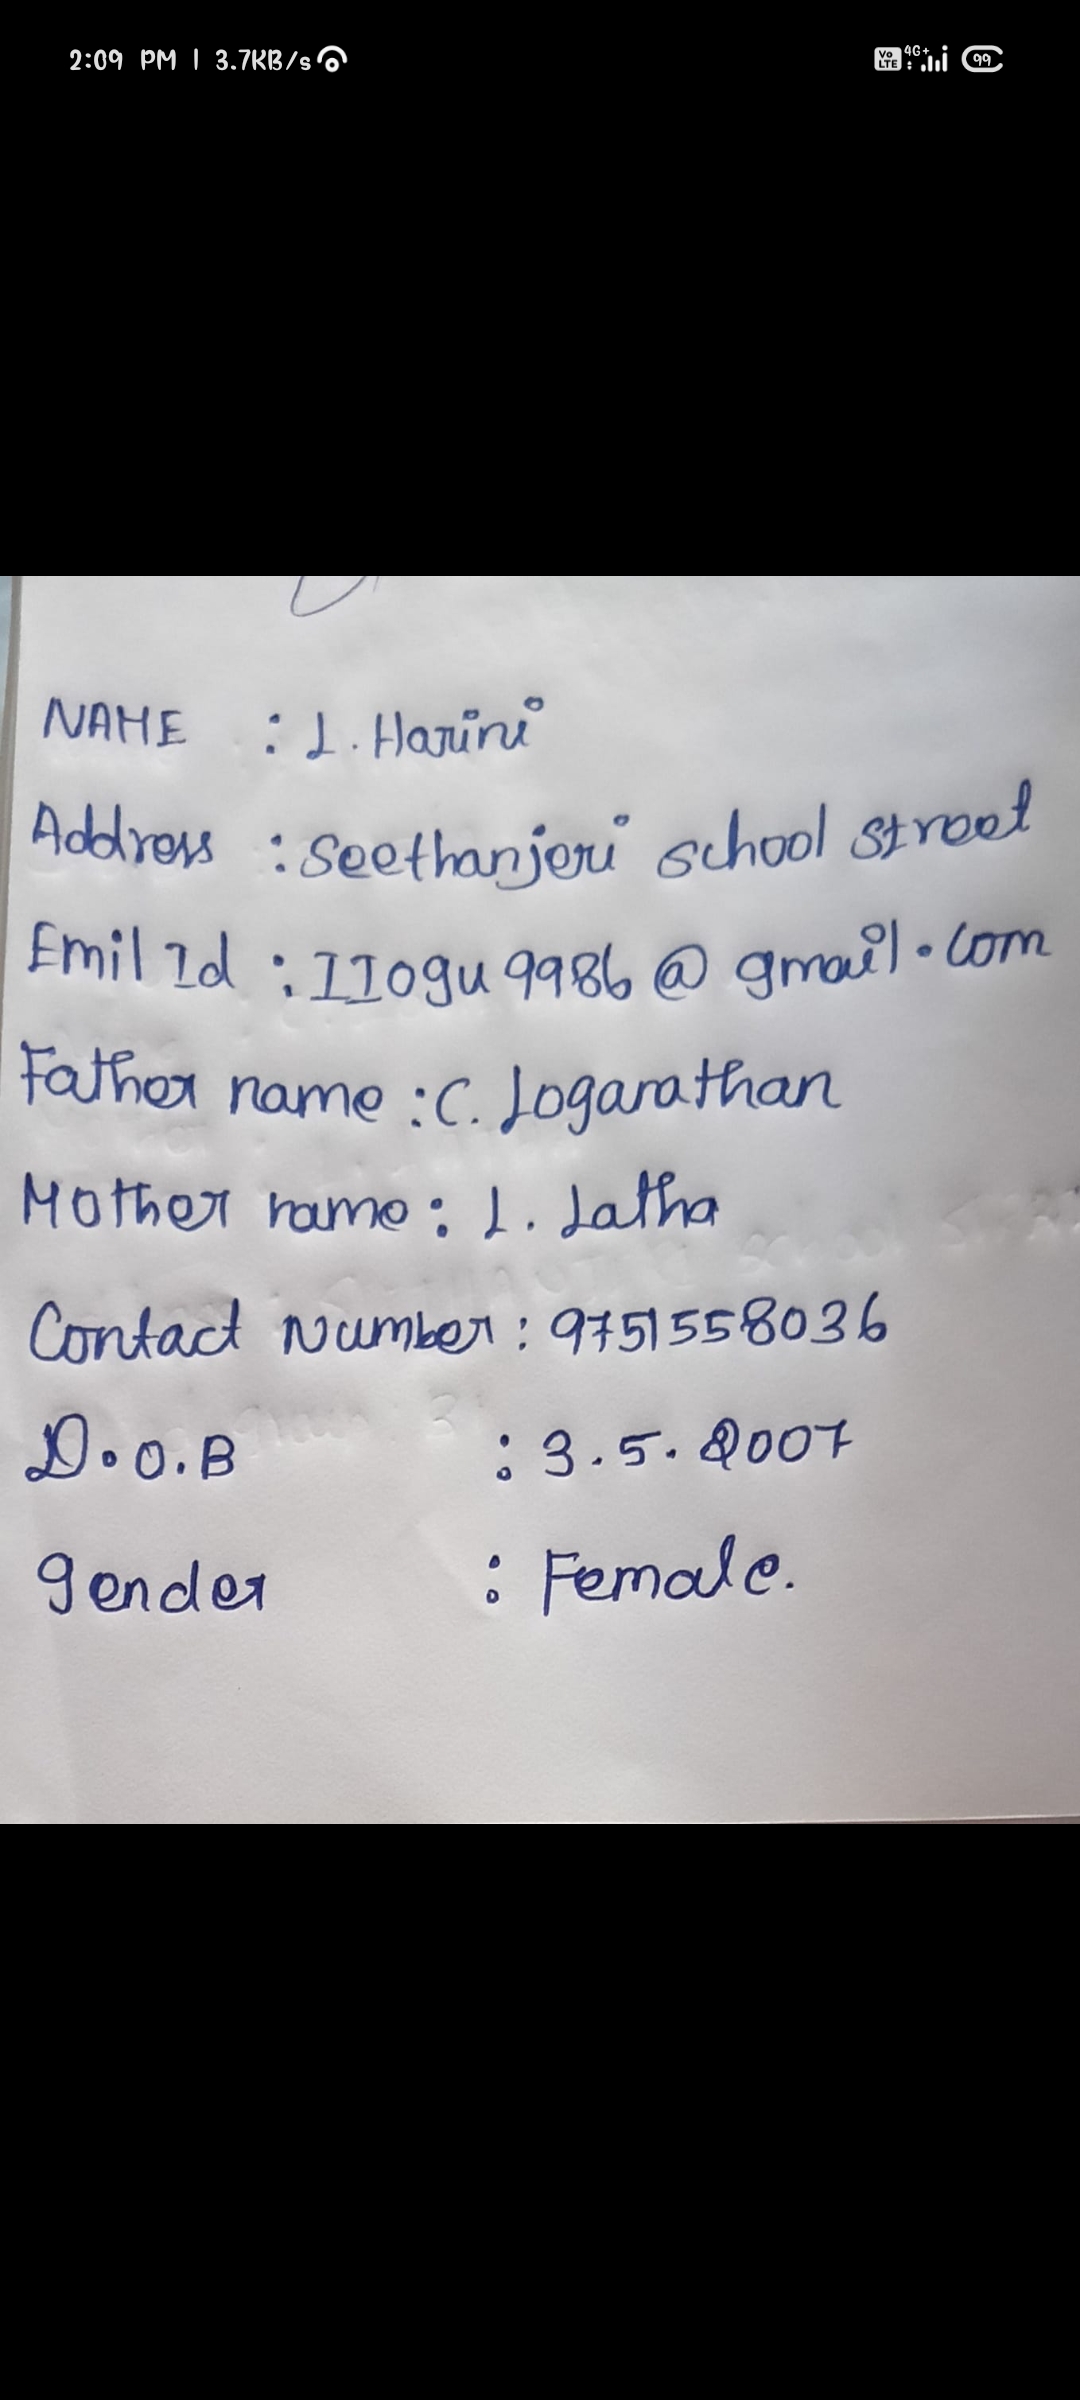 2:09 PM | 3.7KB/s
Vo LTE 4G+ 99
NAME : L. Harini
Address : Seethanjeri school street
Emil Id : IIogu9986@gmail.com
Father name : C. Loganathan
Mother name : L. Latha
Contact Number : 9751558036
D.O.B : 3.5.2007
gender : Female.